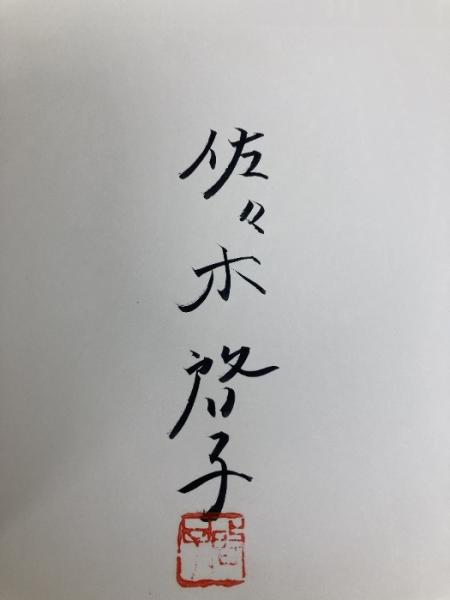 佐々木啓子